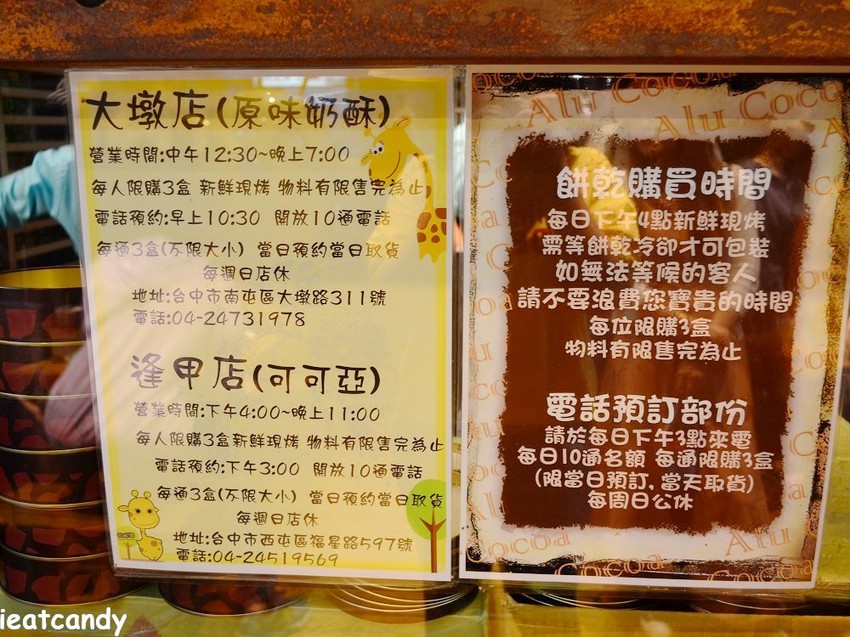 大墩店(原味奶酥)
營業時間:中午12:30~晚上7:00
每人限購3盒 新鮮現烤 物料有限售完為止
電話預約:早上10:30 開放10通電話
每通3盒(不限大小) 當日預約當日取貨
每週日店休
地址:台中市南屯區大墩路311號
電話:04-24731978
逢甲店(可可亞)
營業時間:下午4:00~晚上11:00
每人限購3盒新鮮現烤 物料有限售完為止
電話預約:下午3:00 開放10通電話
每通3盒(不限大小) 當日預約當日取貨
每週日店休
地址:台中市西屯區福星路597號
電話:04-24519569
Alu Cocoa
Alu Coco
餅乾購買時間
每日下午4點新鮮現烤
需等餅乾冷卻才可包裝
如無法等候的客人
請不要浪費您寶貴的時間
每位限購3盒
物料有限售完為止
電話預訂部份
請於每日下午3點來電
每日10通名額 每通限購3盒
(限當日預訂,當天取貨)
每周日公休
Cocoa
Alu Cocoa
Cocoa
ieatcandy